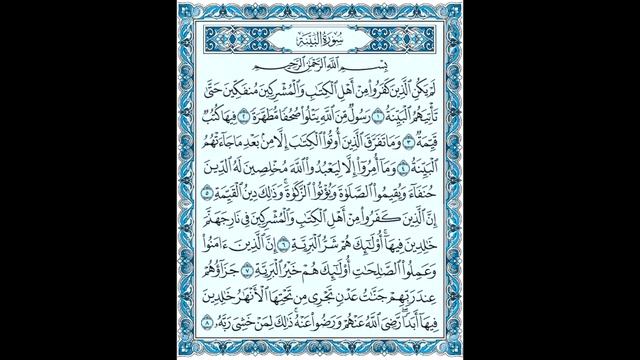 سُورَةُ البَيِّنَةِ
بِسْمِ اللَّهِ الرَّحْمَٰنِ الرَّحِيمِ
لَمْ يَكُنِ الَّذِينَ كَفَرُوا مِنْ أَهْلِ الْكِتَابِ وَالْمُشْرِكِينَ مُنفَكِّينَ حَتَّىٰ
تَأْتِيَهُمُ الْبَيِّنَةُ ١ رَسُولٌ مِّنَ اللَّهِ يَتْلُوا صُحُفًا مُّطَهَّرَةً ٢ فِيهَا كُتُبٌ
قَيِّمَةٌ ٣ وَمَا تَفَرَّقَ الَّذِينَ أُوتُوا الْكِتَابَ إِلَّا مِن بَعْدِ مَا جَاءَتْهُمُ
الْبَيِّنَةُ ٤ وَمَا أُمِرُوا إِلَّا لِيَعْبُدُوا اللَّهَ مُخْلِصِينَ لَهُ الدِّينَ
حُنَفَاءَ وَيُقِيمُوا الصَّلَوٰةَ وَيُؤْتُوا الزَّكَوٰةَ وَذَٰلِكَ دِينُ الْقَيِّمَةِ ٥
إِنَّ الَّذِينَ كَفَرُوا مِنْ أَهْلِ الْكِتَابِ وَالْمُشْرِكِينَ فِي نَارِ جَهَنَّمَ
خَالِدِينَ فِيهَا أُولَٰئِكَ هُمْ شَرُّ الْبَرِيَّةِ ٦ إِنَّ الَّذِينَ ءَامَنُوا
وَعَمِلُوا الصَّالِحَاتِ أُولَٰئِكَ هُمْ خَيْرُ الْبَرِيَّةِ ٧ جَزَاؤُهُمْ
عِندَ رَبِّهِمْ جَنَّاتُ عَدْنٍ تَجْرِي مِن تَحْتِهَا الْأَنْهَارُ خَالِدِينَ
فِيهَا أَبَدًا رَّضِيَ اللَّهُ عَنْهُمْ وَرَضُوا عَنْهُ ذَٰلِكَ لِمَنْ خَشِيَ رَبَّهُ ٨